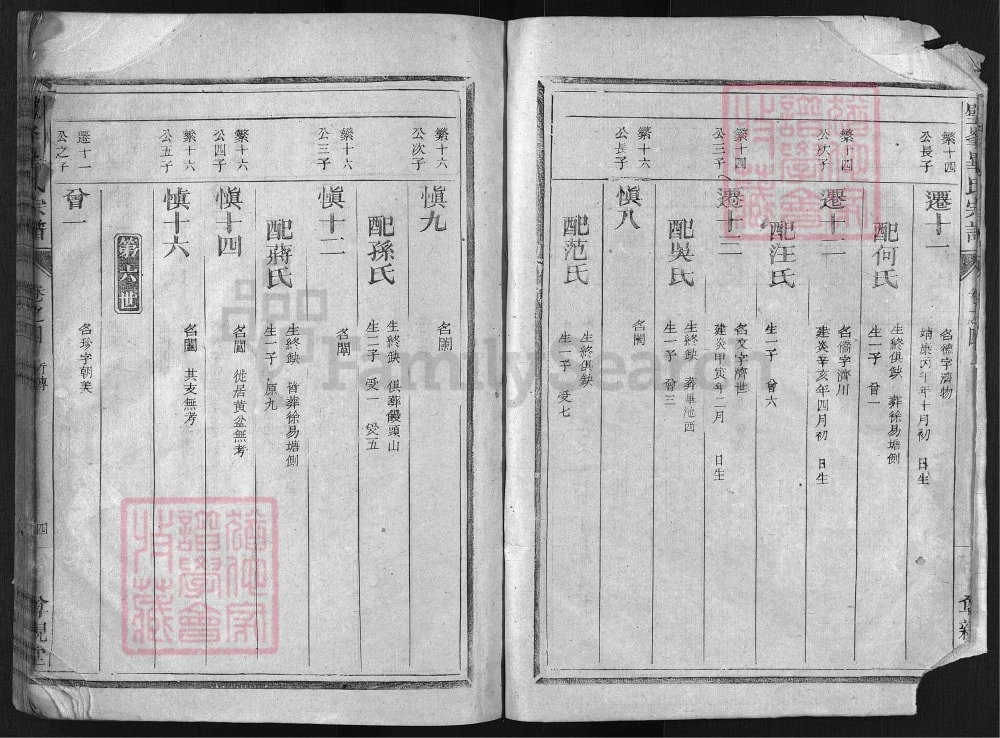 繁十四
公長子
遷十一
名德字濟物
靖康丙午年十月初 日生
配何氏
生終俱缺 葬徐易塘側
生一子 曾一
繁十四
公次子
遷十二
名僑字濟川
建炎辛亥年四月初 日生
配汪氏
生一子 曾六
繁十四
公三子
名文字濟世
建炎甲寅年二月 日生
配吳氏
生終缺 葬畢池西
生一子 曾三
繁十六
公長子
愼八
名闌
配范氏
生終俱缺
生一子 爱七
繁十六
公次子
愼九
配孫氏
生終缺 俱葬饅頭山
生二子 爱一 爱五
繁十六
公三子
愼十二
名閘
配蔣氏
生終缺 皆葬徐易塘側
生一子 原九
繁十六
公四子
愼十四
名閶 徙居黃盆無考
繁十六
公五子
愼十六
名閫 其支無考
第六世
遷十一
公之子
曾一
名珍字朝美
卷之四
行傳
四
FamilySearch